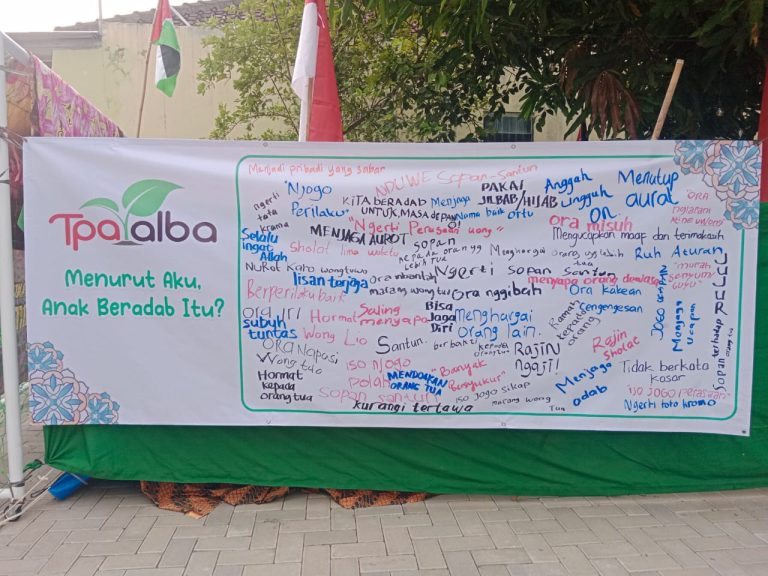 Tpa alba
Menurut Aku,
Anak Beradab Itu?
Menjadi pribadi yang sabar
NDUWE Sopan-Santun
"Njogo
Perilaku"
Ngerti
tata
krama
KITA BERADAB
UNTUK MASA DEPAN
Menjaga
Nama baik ortu
PAKAI
JILBAB/HIJAB
Anggah
Ungguh
on
Menutup
aurat
"ORA
NGIANANI
Selalu
ingat
Allah
"Ngerti Perasaan wong"
MENJAGA AUROT
ora misuh
Mengucapkan maaf dan terimakasih
sholat lima waktu
sopan
kepada orang yg
lebih tua
Menghargai orang yg lebih tua
Patuh Aturan
NURUT Karo wongtuwo
lisan terjaga
Ora mbantah
marang wong tuo
Ngerti sopan santun
menyapa orang dewasa
"murah
senyum"
JUJUR
Berperilaku baik
Ora nggibah
Ora kakean
cengengesan
ora iri
subuh
tuntas
Hormat
Saling
menyapa
Bisa
Jaga
Diri
Menghargai
orang lain.
Ramah
kepada
orang
Menjaga
ucapan
Sopan
Wong Lio
Santun.
berbakti kepada
orangtua
RAJIN
NGAJI!
Rajin
sholat
ORA NAPOSI
Wong tuo
iso njogo
polah
"Banyak
Bersyukur"
Tidak berkata
kasar
Hormat
kepada
orang tua
MENDOAKAN
ORANG TUA
Menjaga
adab
sopan santun
iso jogo sikap
marang wong
Tua
"iso JOGO perasaan"
Ngerti toto kromo
kurangi tertawa